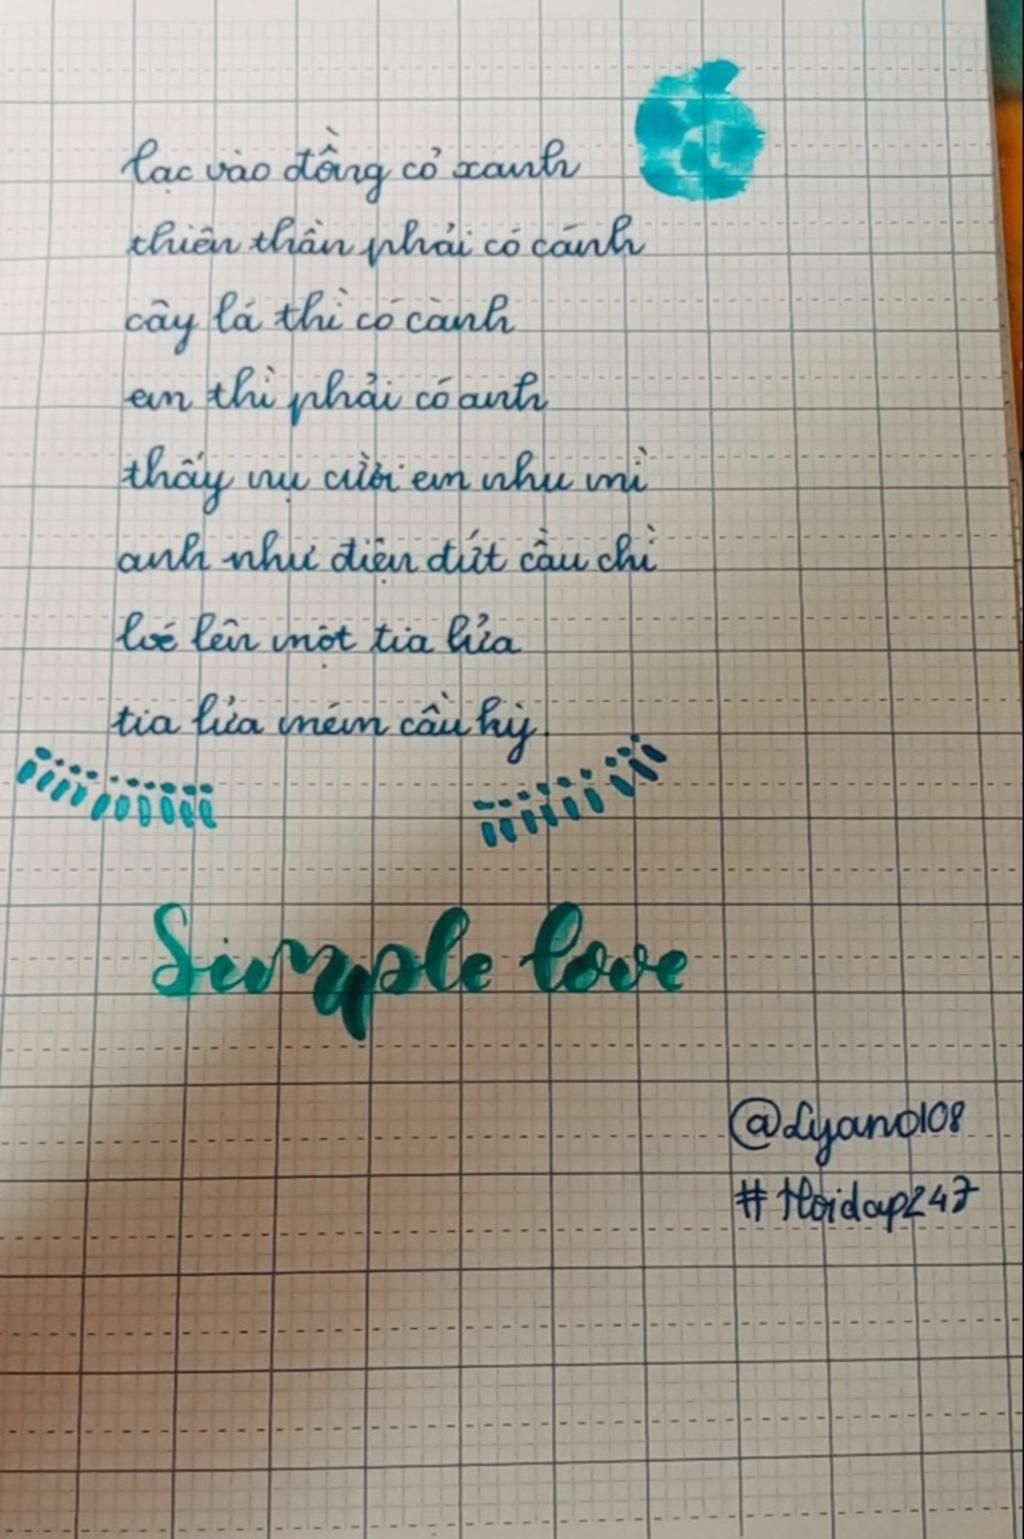 lạc vào đồng cỏ xanh
thiên thần phải có cánh
cây lá thì có cành
em thì phải có anh
thấy nụ cười em nhu mì
anh như điện đứt cầu chì
loé lên một tia lửa
tia lửa mém cầu kỳ
Simple love
@Lyano108
#Hoidap247